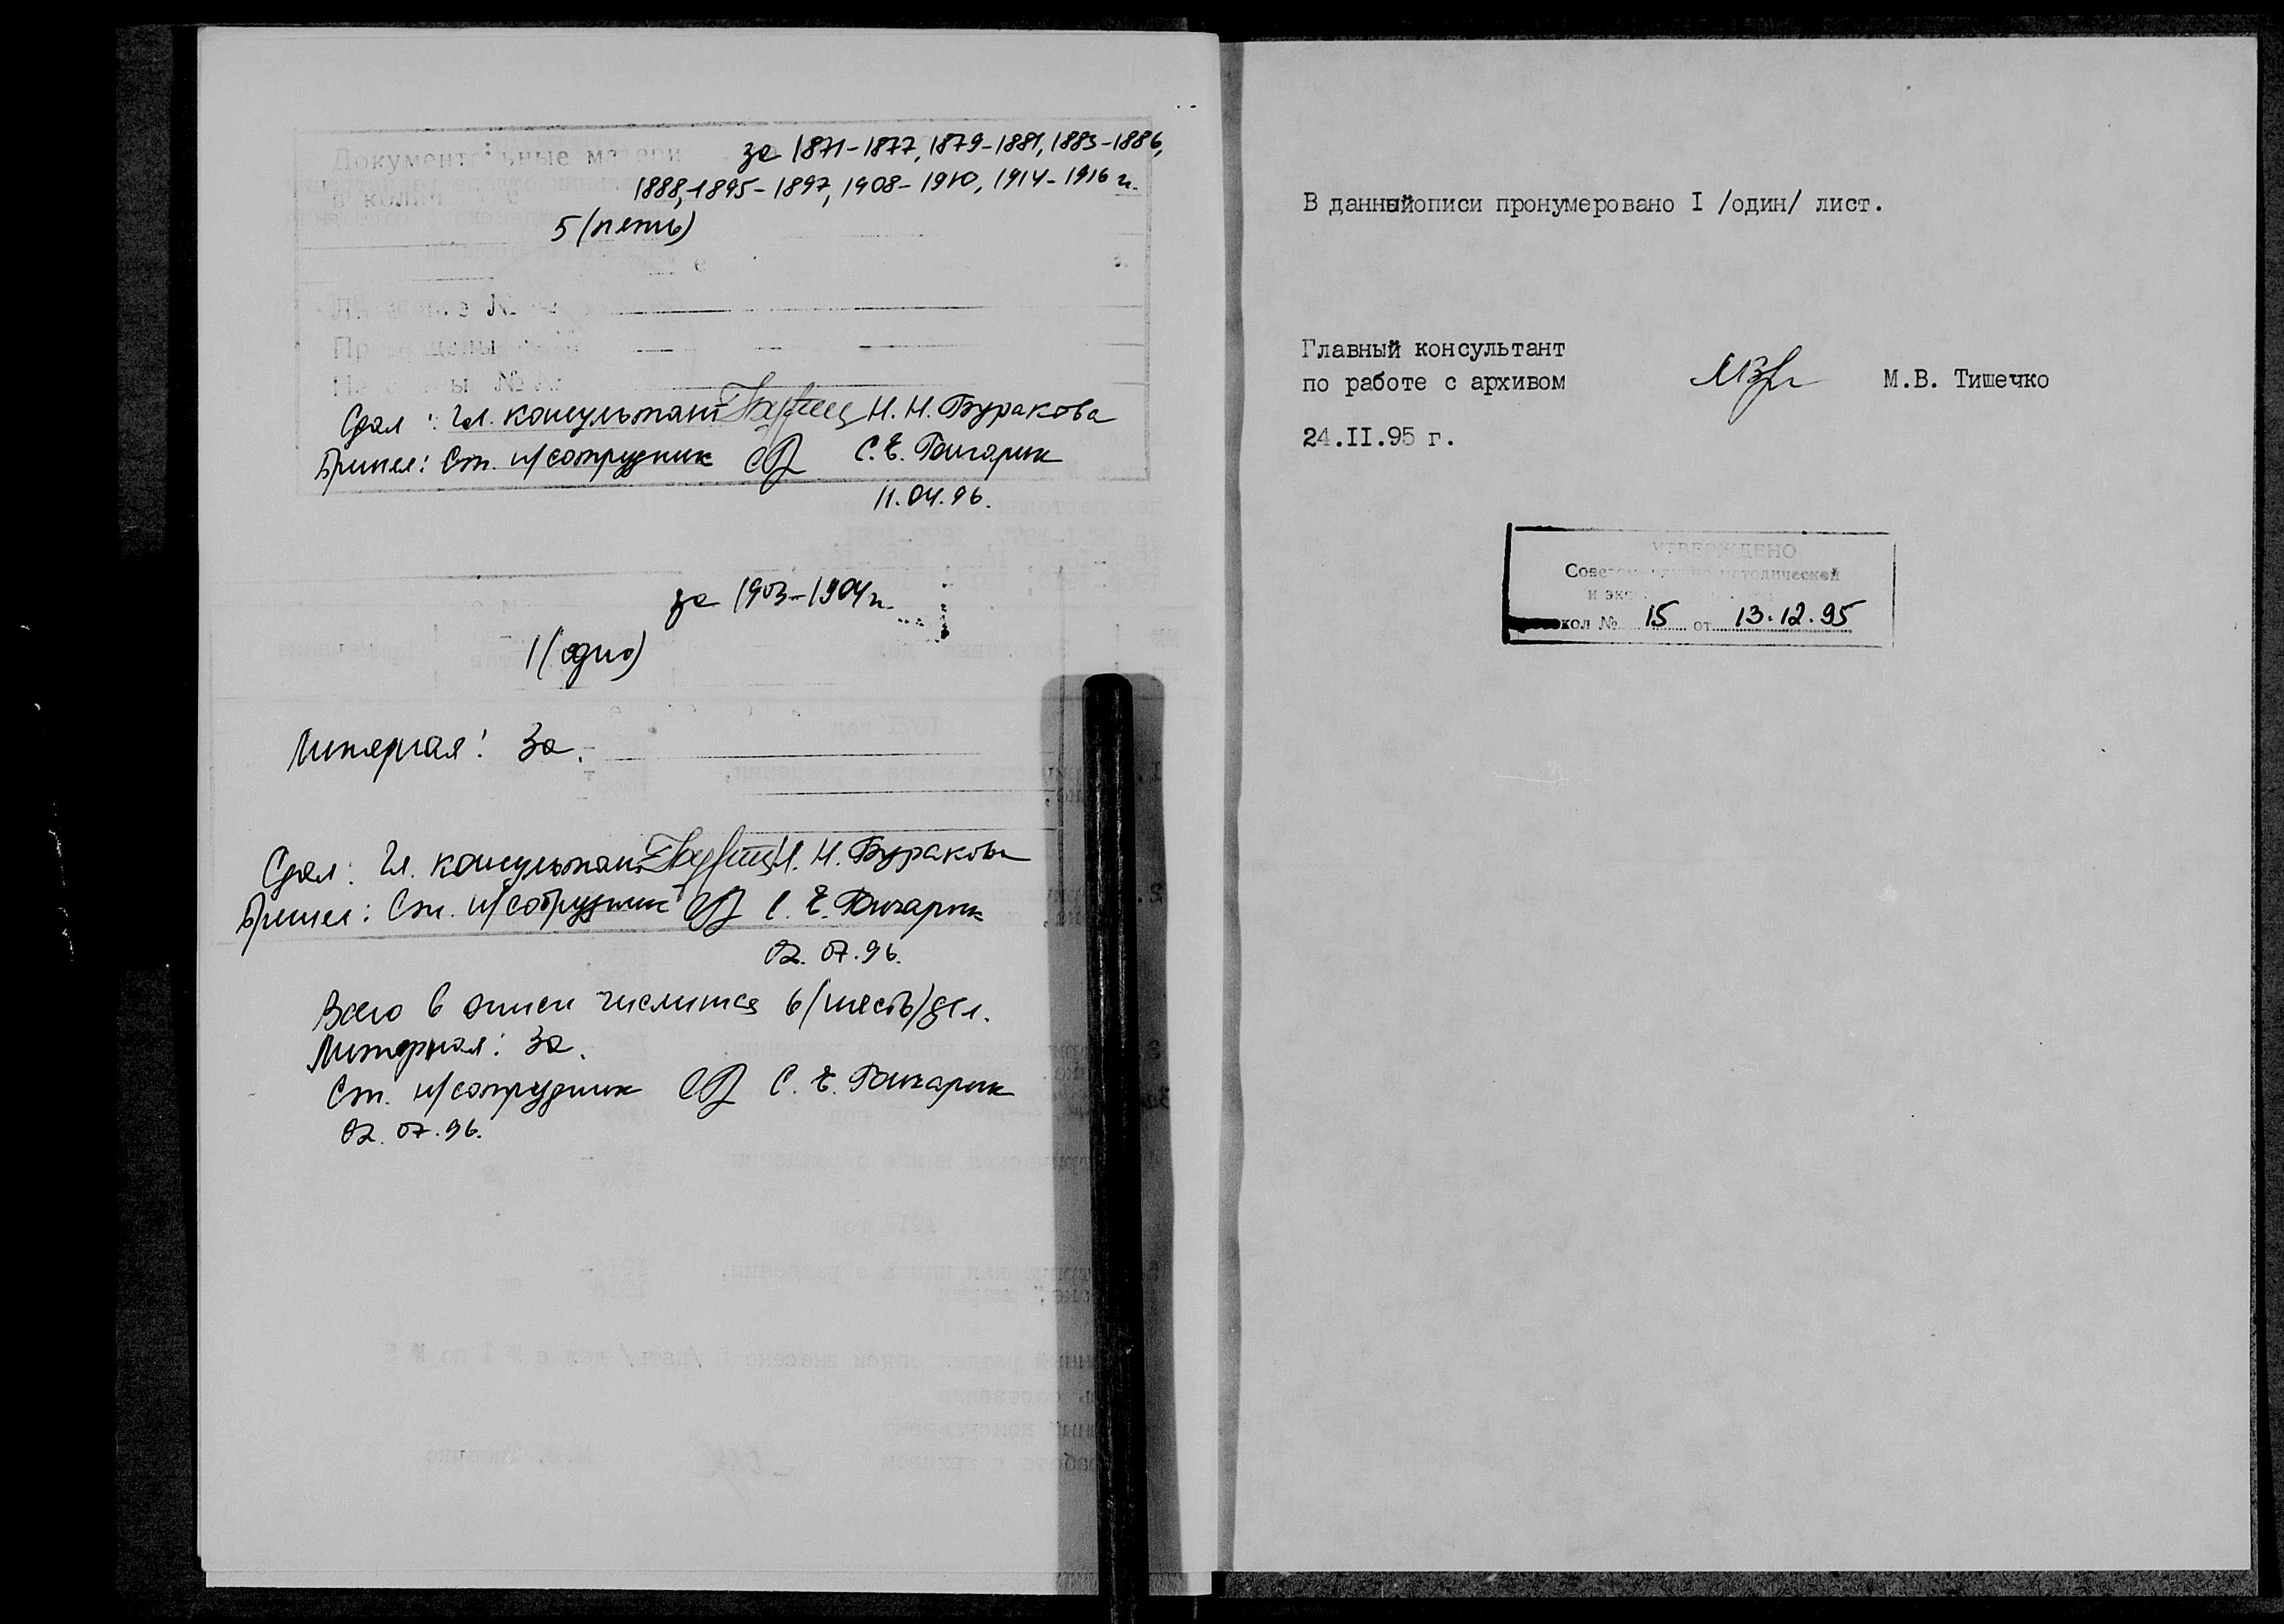 Документальные матери
за 1871-1877, 1879-1881, 1883-1886,
1888, 1895-1897, 1908-1910, 1914-1916 г.
5 (пять)
Сдал: Гл. консультант Н. Н. Буракова
Принял: Ст. н/сотрудник С. Е.
11.04.96.
за 1903-1904 г.
1 (одно)
Литерная: 3а.
Сдал: Гл. консультант Н. Н. Буракова
Принял: Ст. н/сотрудник С. Е.
02.07.96.
Всего в описи числится 6 (шесть) дел.
Литерная: 3а.
Ст. н/сотрудник С. Е.
02.07.96.
В данныйописи пронумеровано I /один/ лист.
Главный консультант
по работе с архивом М.В. Тишечко
24.II.95 г.
УТВЕРЖДЕНО
методической
кол № 15 от 13.12.95